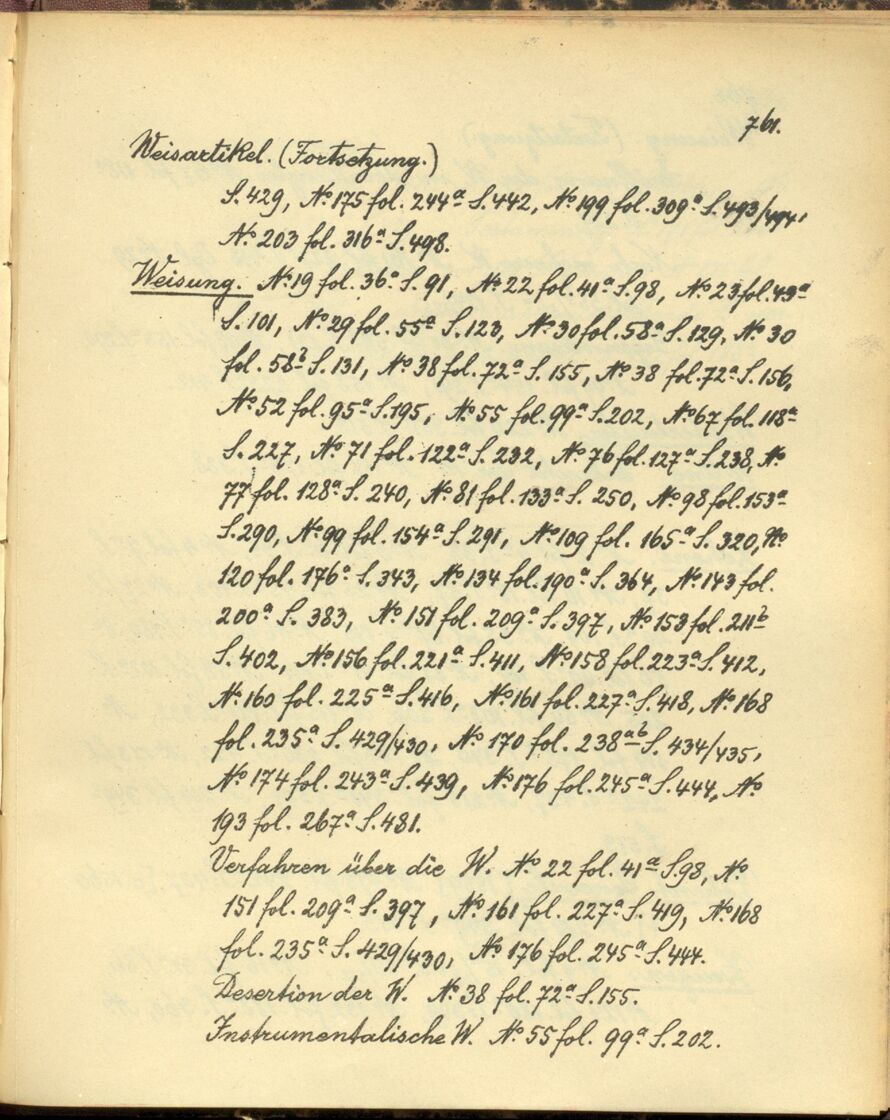 761.
Weisartikel. (Fortsetzung.)
S. 429, No. 175 fol. 244a S. 442, No. 199 fol. 309a S. 493/494,
No. 203 fol. 316a S. 498.
Weisung. No. 19 fol. 36a S. 91, No. 22 fol. 41a S. 98, No. 23 fol. 43a
S. 101, No. 29 fol. 55a S. 123, No. 30 fol. 58a S. 129, No. 30
fol. 58b S. 131, No. 38 fol. 72a S. 155, No. 38 fol. 72a S. 156,
No. 52 fol. 95a S. 195, No. 55 fol. 99a S. 202, No. 67 fol. 118a
S. 227, No. 71 fol. 122a S. 232, No. 76 fol. 127a S. 238, No.
77 fol. 128a S. 240, No. 81 fol. 133a S. 250, No. 98 fol. 153a
S. 290, No. 99 fol. 154a S. 291, No. 109 fol. 165a S. 320, No.
120 fol. 176a S. 343, No. 134 fol. 190a S. 364, No. 143 fol.
200a S. 383, No. 151 fol. 209a S. 397, No. 153 fol. 211b
S. 402, No. 156 fol. 221a S. 411, No. 158 fol. 223a S. 412,
No. 160 fol. 225a S. 416, No. 161 fol. 227a S. 418, No. 168
fol. 235a S. 429/430, No. 170 fol. 238ab S. 434/435,
No. 174 fol. 243a S. 439, No. 176 fol. 245a S. 444, No.
193 fol. 267a S. 481.
Verfahren über die W. No. 22 fol. 41a S. 98, No.
151 fol. 209a S. 397, No. 161 fol. 227a S. 419, No. 168
fol. 235a S. 429/430, No. 176 fol. 245a S. 444.
Desertion der W. No. 38 fol. 72a S. 155.
Instrumentalische W. No. 55 fol. 99a S. 202.